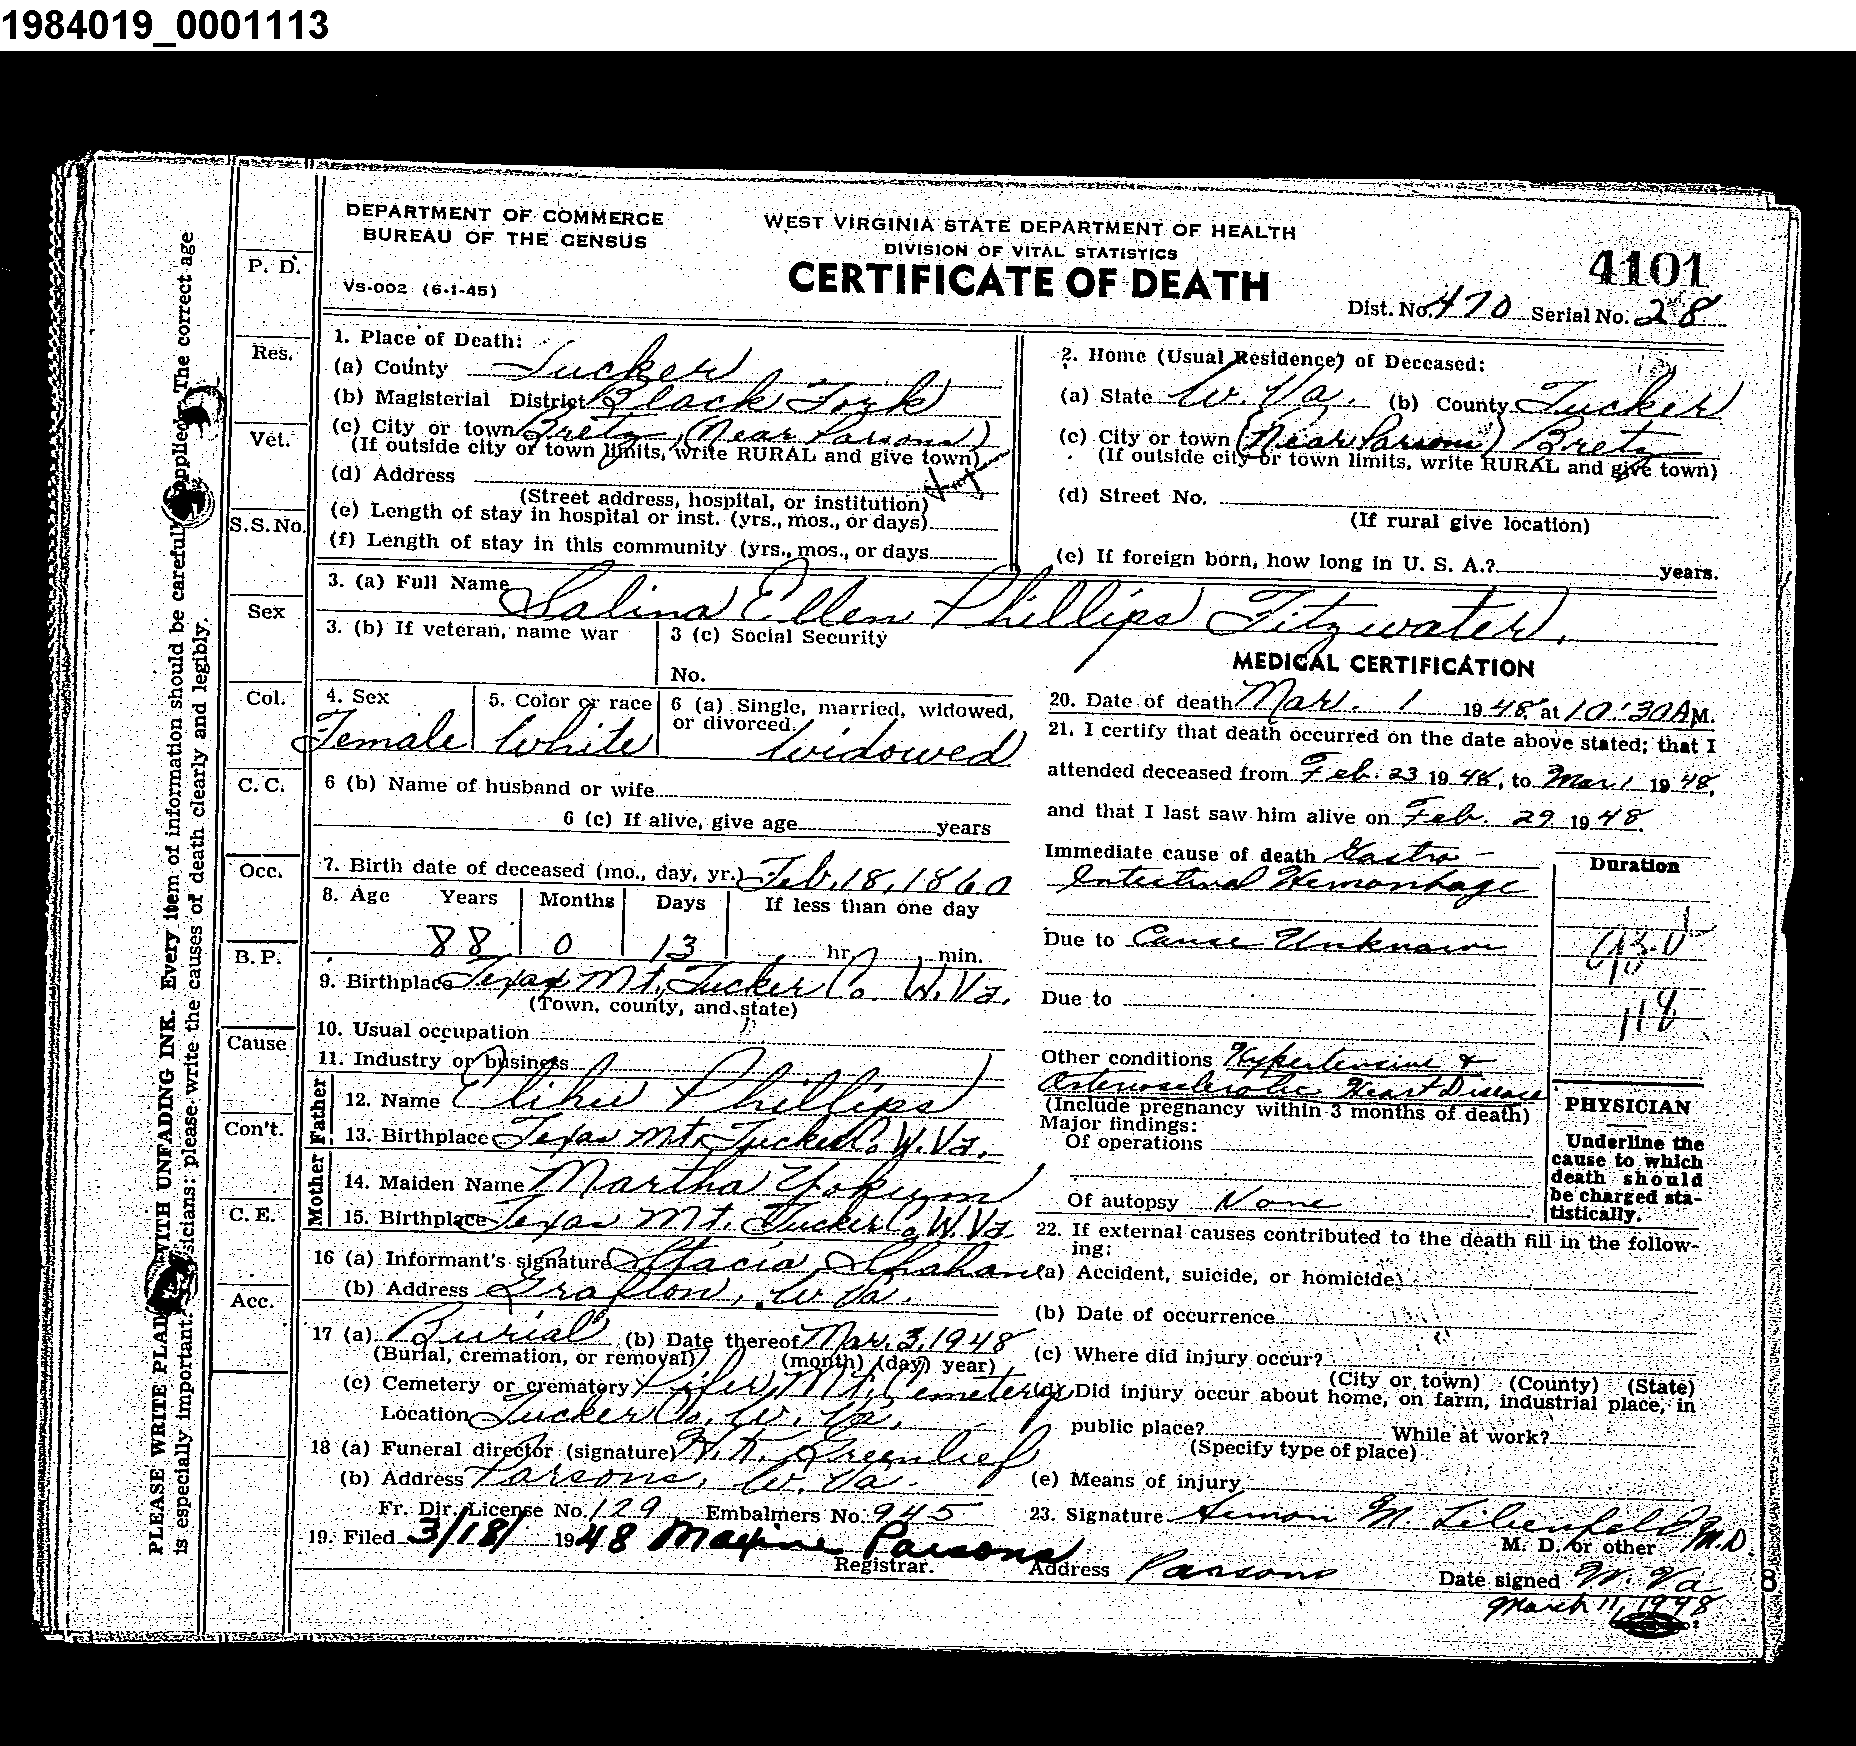 1984019_0001113
PLEASE WRITE PLAINLY WITH UNFADING INK. Every item of information should be carefully supplied. The correct age
is especially important. Physicians: please write the causes of death clearly and legibly.
P. D.
Res.
Vet.
S.S. No.
Sex
Col.
C. C.
Occ.
B. P.
Cause
Con't.
C. E.
Acc.
DEPARTMENT OF COMMERCE
BUREAU OF THE CENSUS
VS-002 (6-1-45)
WEST VIRGINIA STATE DEPARTMENT OF HEALTH
DIVISION OF VITAL STATISTICS
CERTIFICATE OF DEATH
4101
Dist. No. 470 Serial No. 28
1. Place of Death:
(a) County Tucker
(b) Magisterial District Black Fork
(c) City or town Bretz, (Near Parsons)
(If outside city or town limits, write RURAL and give town)
(d) Address
(Street address, hospital, or institution)
(e) Length of stay in hospital or inst. (yrs., mos., or days)
(f) Length of stay in this community (yrs., mos., or days
2. Home (Usual Residence) of Deceased:
(a) State W. Va. (b) County Tucker
(c) City or town (Near Parsons) Bretz
(If outside city or town limits, write RURAL and give town)
(d) Street No.
(If rural give location)
(e) If foreign born, how long in U. S. A.? years.
3. (a) Full Name Salina Ellen Phillips Fitzwater.
3. (b) If veteran, name war
3 (c) Social Security
No.
4. Sex Female
5. Color or race White
6 (a) Single, married, widowed,
or divorced. Widowed
6 (b) Name of husband or wife
6 (c) If alive, give age years
7. Birth date of deceased (mo., day, yr.) Feb. 18, 1860
8. Age Years Months Days If less than one day
88 0 13 hr. min.
9. Birthplace Texas Mt. Tucker Co. W. Va.
(Town, county, and state)
10. Usual occupation
11. Industry or business
Father
12. Name Elihu Phillips
13. Birthplace Texas Mt. Tucker Co. W. Va.
Mother
14. Maiden Name Martha Yokum
15. Birthplace Texas Mt. Tucker Co. W. Va.
16 (a) Informant's signature Stacia Shahan
(b) Address Grafton, W. Va.
17 (a) Burial (b) Date thereof Mar. 3, 1948
(Burial, cremation, or removal) (month) (day) year)
(c) Cemetery or crematory Pifer Mt. Cemetery
Location Tucker Co. W. Va.
18 (a) Funeral director (signature) H. K. Greenlief
(b) Address Parsons, W. Va.
Fr. Dir. License No. 129 Embalmers No. 945
19. Filed 3/18/ 1948 Maxine Parsons
Registrar.
MEDICAL CERTIFICATION
20. Date of death Mar. 1 1948, at 10:30 A M.
21. I certify that death occurred on the date above stated; that I
attended deceased from Feb. 23 1948, to Mar 1 1948,
and that I last saw him alive on Feb. 29 1948.
Immediate cause of death Gastro-
Intestinal Hemorrhage
Due to Cause Unknown
Due to
Duration
118
Other conditions Hypertensive &
Arteriosclerotic Heart Disease
(Include pregnancy within 3 months of death)
Major findings:
Of operations
Of autopsy None
PHYSICIAN
Underline the
cause to which
death should
be charged sta-
tistically.
22. If external causes contributed to the death fill in the follow-
ing:
(a) Accident, suicide, or homicide)
(b) Date of occurrence
(c) Where did injury occur?
(City or town) (County) (State)
(d) Did injury occur about home, on farm, industrial place, in
public place? While at work?
(Specify type of place)
(e) Means of injury
23. Signature M. Lilienfeld M.D.
M. D. or other
Address Parsons Date signed W. Va
March 11, 1948
8